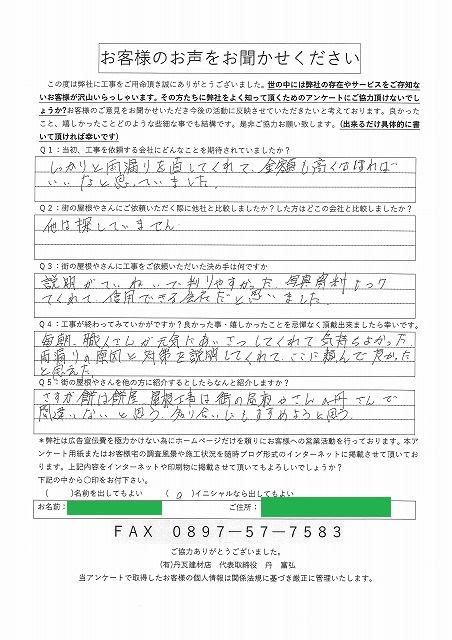 お客様のお声をお聞かせください
この度は弊社に工事をご用命頂き誠にありがとうございました。世の中には弊社の存在やサービスをご存知な
いお客様が沢山いらっしゃいます。その方たちに弊社をよく知って頂くためのアンケートにご協力頂けないでし
ょうか?お客様のご意見をお聞かせいただき今後の活動に反映させていただきたいと考えております。良かった
こと、嬉しかったことどのような些細な事でも結構です。是非ご協力お願い致します。(出来るだけ具体的に書
いて頂ければ幸いです)
Q1:当初、工事を依頼する会社にどんなことを期待されていましたか?
しっかりと雨漏りを直してくれて、金額も高くなければ
いいなと思っていました。
Q2:街の屋根やさんにご依頼いただく際に他社と比較しましたか?した方はどこの会社と比較しましたか?
他は探していません
Q3:街の屋根やさんに工事をご依頼いただいた決め手は何ですか
説明がていねいで判りやすかった。写真資料もつけ
てくれて、信用できる会社だと思いました。
Q4:工事が終わってみていかがですか?良かった事・嬉しかったことを忌憚なく頂戴出来ましたら幸いです。
毎朝、職人さんが元気にあいさつしてくれて気持ちよかった。
雨漏りの原因と対策を説明してくれて、ここに頼んで良かった
と思えた。
Q5:街の屋根やさんを他の方に紹介するとしたらなんと紹介しますか?
さすが餅は餅屋、屋根工事は街の屋根やさんの丹さんで
間違いないと思う。知り合いにもすすめようと思う。
*弊社は広告宣伝費を極力かけない為にホームページだけを頼りにお客様への営業活動を行っております。本ア
ンケート用紙またはお客様宅の調査風景や施工状況を随時ブログ形式のインターネットに掲載させて頂いてお
ります。上記内容をインターネットや印刷物に掲載させて頂いてもよろしいでしょうか?
下記の中から〇印をお付下さい。
( )名前を出してもよい ( o )イニシャルなら出してもよい
お名前: ご住所:
FAX 0897-57-7583
ご協力ありがとうございました。
(有)丹瓦建材店 代表取締役 丹 富弘
当アンケートで取得したお客様の個人情報は関係法規に基づき厳正に管理いたします。